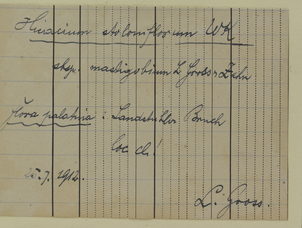 Hieracium stoloniflorum WK
ssp. mastigobium L Gross & Zahn
Flora palatina: Landstuhler Bruch
loc. cl!
25.7.1912.
L. Gross.